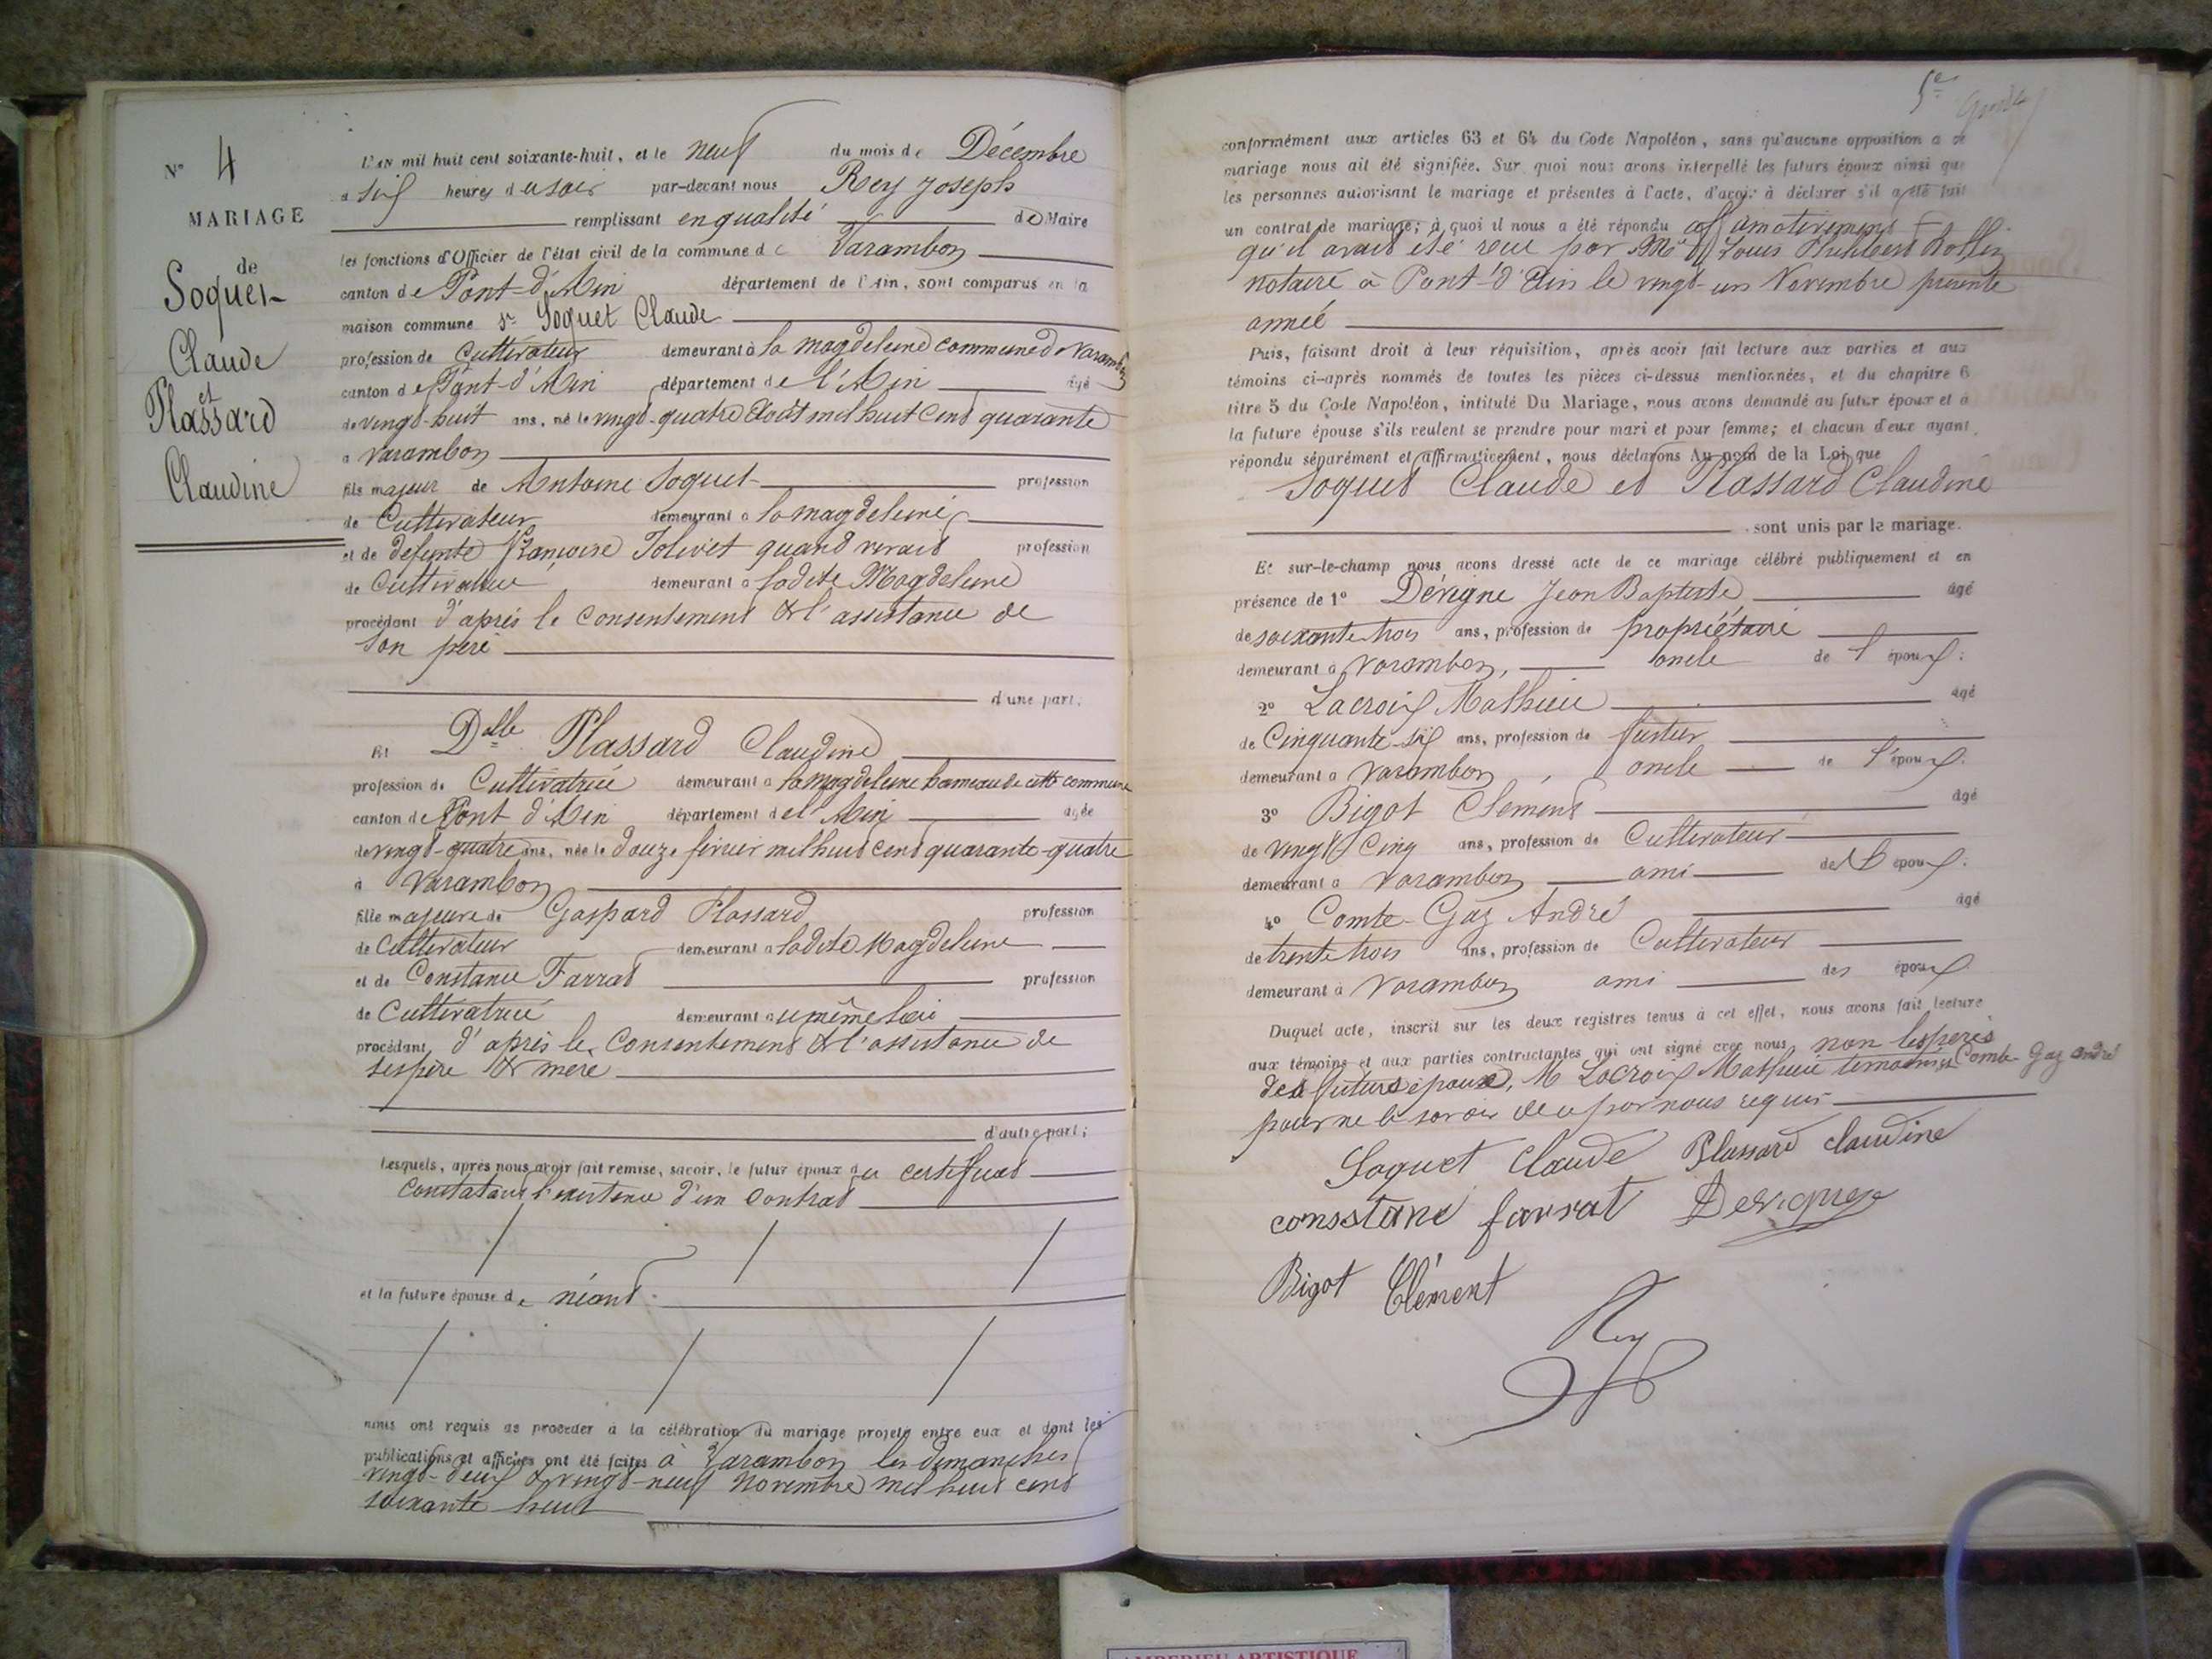 N° 4
MARIAGE
de
Soquet
Claude
et
Plassard
Claudine
L'AN mil huit cent soixante-huit, et le neuf du mois de Décembre
a six heures du soir par-devant nous Rey Joseph
remplissant en qualité de Maire
les fonctions d'Officier de l'état civil de la commune de Varambon
canton de Pont-d'Ain département de l'Ain, sont comparus en la
maison commune Sr Soquet Claude
profession de Cultivateur demeurant à la magdeleine commune de Varambon
canton de Pont-d'Ain département de l'Ain âgé
de vingt-huit ans, né le vingt-quatre Août mil huit cent quarante
a Varambon
fils majeur de Antoine Soquet profession
de Cultivateur demeurant a la magdeleine
et de defunte Françoise Tolivet quand vivait profession
de Cultivatrice demeurant a ladite Magdeleine
procédant d'après le consentement & l'assistance de
son père
d'une part.
Et Delle Plassard Claudine
profession de Cultivatrice demeurant a la magdeleine hameau de cette commune
canton de Pont d'Ain département de l'Ain agée
de vingt-quatre ans, née le douze février mil huit cent quarante-quatre
à Varambon
fille majeure de Gaspard Plassard profession
de Cultivateur demeurant a ladite Magdeleine
et de Constance Farrat profession
de Cultivatrice demeurant au même lieu
procédant d'après le Consentement & l'assistance de
ses père & mère
d'autre part;
Lesquels, après nous avoir fait remise, savoir, le futur époux du certificat
constatant l'existence d'un contrat
et la future épouse de néant.
nous ont requis de procéder à la célébration du mariage projeté entre eux et dont les
publications et affiches ont été faites à Varambon les dimanches
vingt-deux & vingt-neuf Novembre mil huit cent
soixante huit
5e
conformément aux articles 63 et 64 du Code Napoléon, sans qu'aucune opposition a ce
mariage nous ait été signifiée. Sur quoi nous avons interpellé les futurs époux ainsi que
les personnes autorisant le mariage et présentes à l'acte, d'avoir à déclarer s'il a été fait
un contrat de mariage; à quoi il nous a été répondu affirmativement &
qu'il avait été reçu par Me Louis
notaire à Pont-d'Ain le vingt-un Novembre présente
année
Puis, faisant droit à leur réquisition, après avoir fait lecture aux parties et aux
témoins ci-après nommés de toutes les pièces ci-dessus mentionnées, et du chapitre 6
titre 5 du Code Napoléon, intitulé Du Mariage, nous avons demandé au futur époux et à
la future épouse s'ils veulent se prendre pour mari et pour femme; et chacun d'eux ayant
répondu séparément et affirmativement, nous déclarons Au nom de la Loi que
Soquet Claude et Plassard Claudine
sont unis par le mariage.
Et sur-le-champ nous avons dressé acte de ce mariage célébré publiquement et en
présence de 1° Dérigne Jean Baptiste âgé
de soixante trois ans, profession de propriétaire
demeurant a Varambon, oncle de l'époux:
2° Lacroix Mathieu âgé
de Cinquante-six ans, profession de
demeurant a Varambon, oncle de l'époux.
3° Bigot Clement âgé
de vingt Cinq ans, profession de Cultivateur
demeurant a Varambon ami de l'époux:
4° Comte-Gaz André âgé
de trente trois ans, profession de Cultivateur
demeurant à Varambon ami des époux
Duquel acte, inscrit sur les deux registres tenus à cet effet, nous avons fait lecture
aux témoins et aux parties contractantes qui ont signé avec nous, non les peres
des futurs époux, M Lacroix Mathieu témoins, et Comte-Gaz André
pour ne le savoir de ce par nous requis
Soquet Claude Plassard claudine
consstance farrat Derigne
Bigot Clément
Rey
AMBERIEU ARTISTIQUE